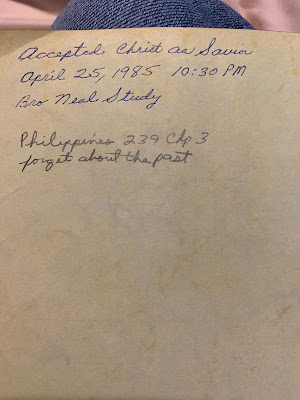 Accepted Christ as Savior
April 25, 1985 10:30 PM
Bro Neal Study
Philippines 239 Chp 3
forget about the past